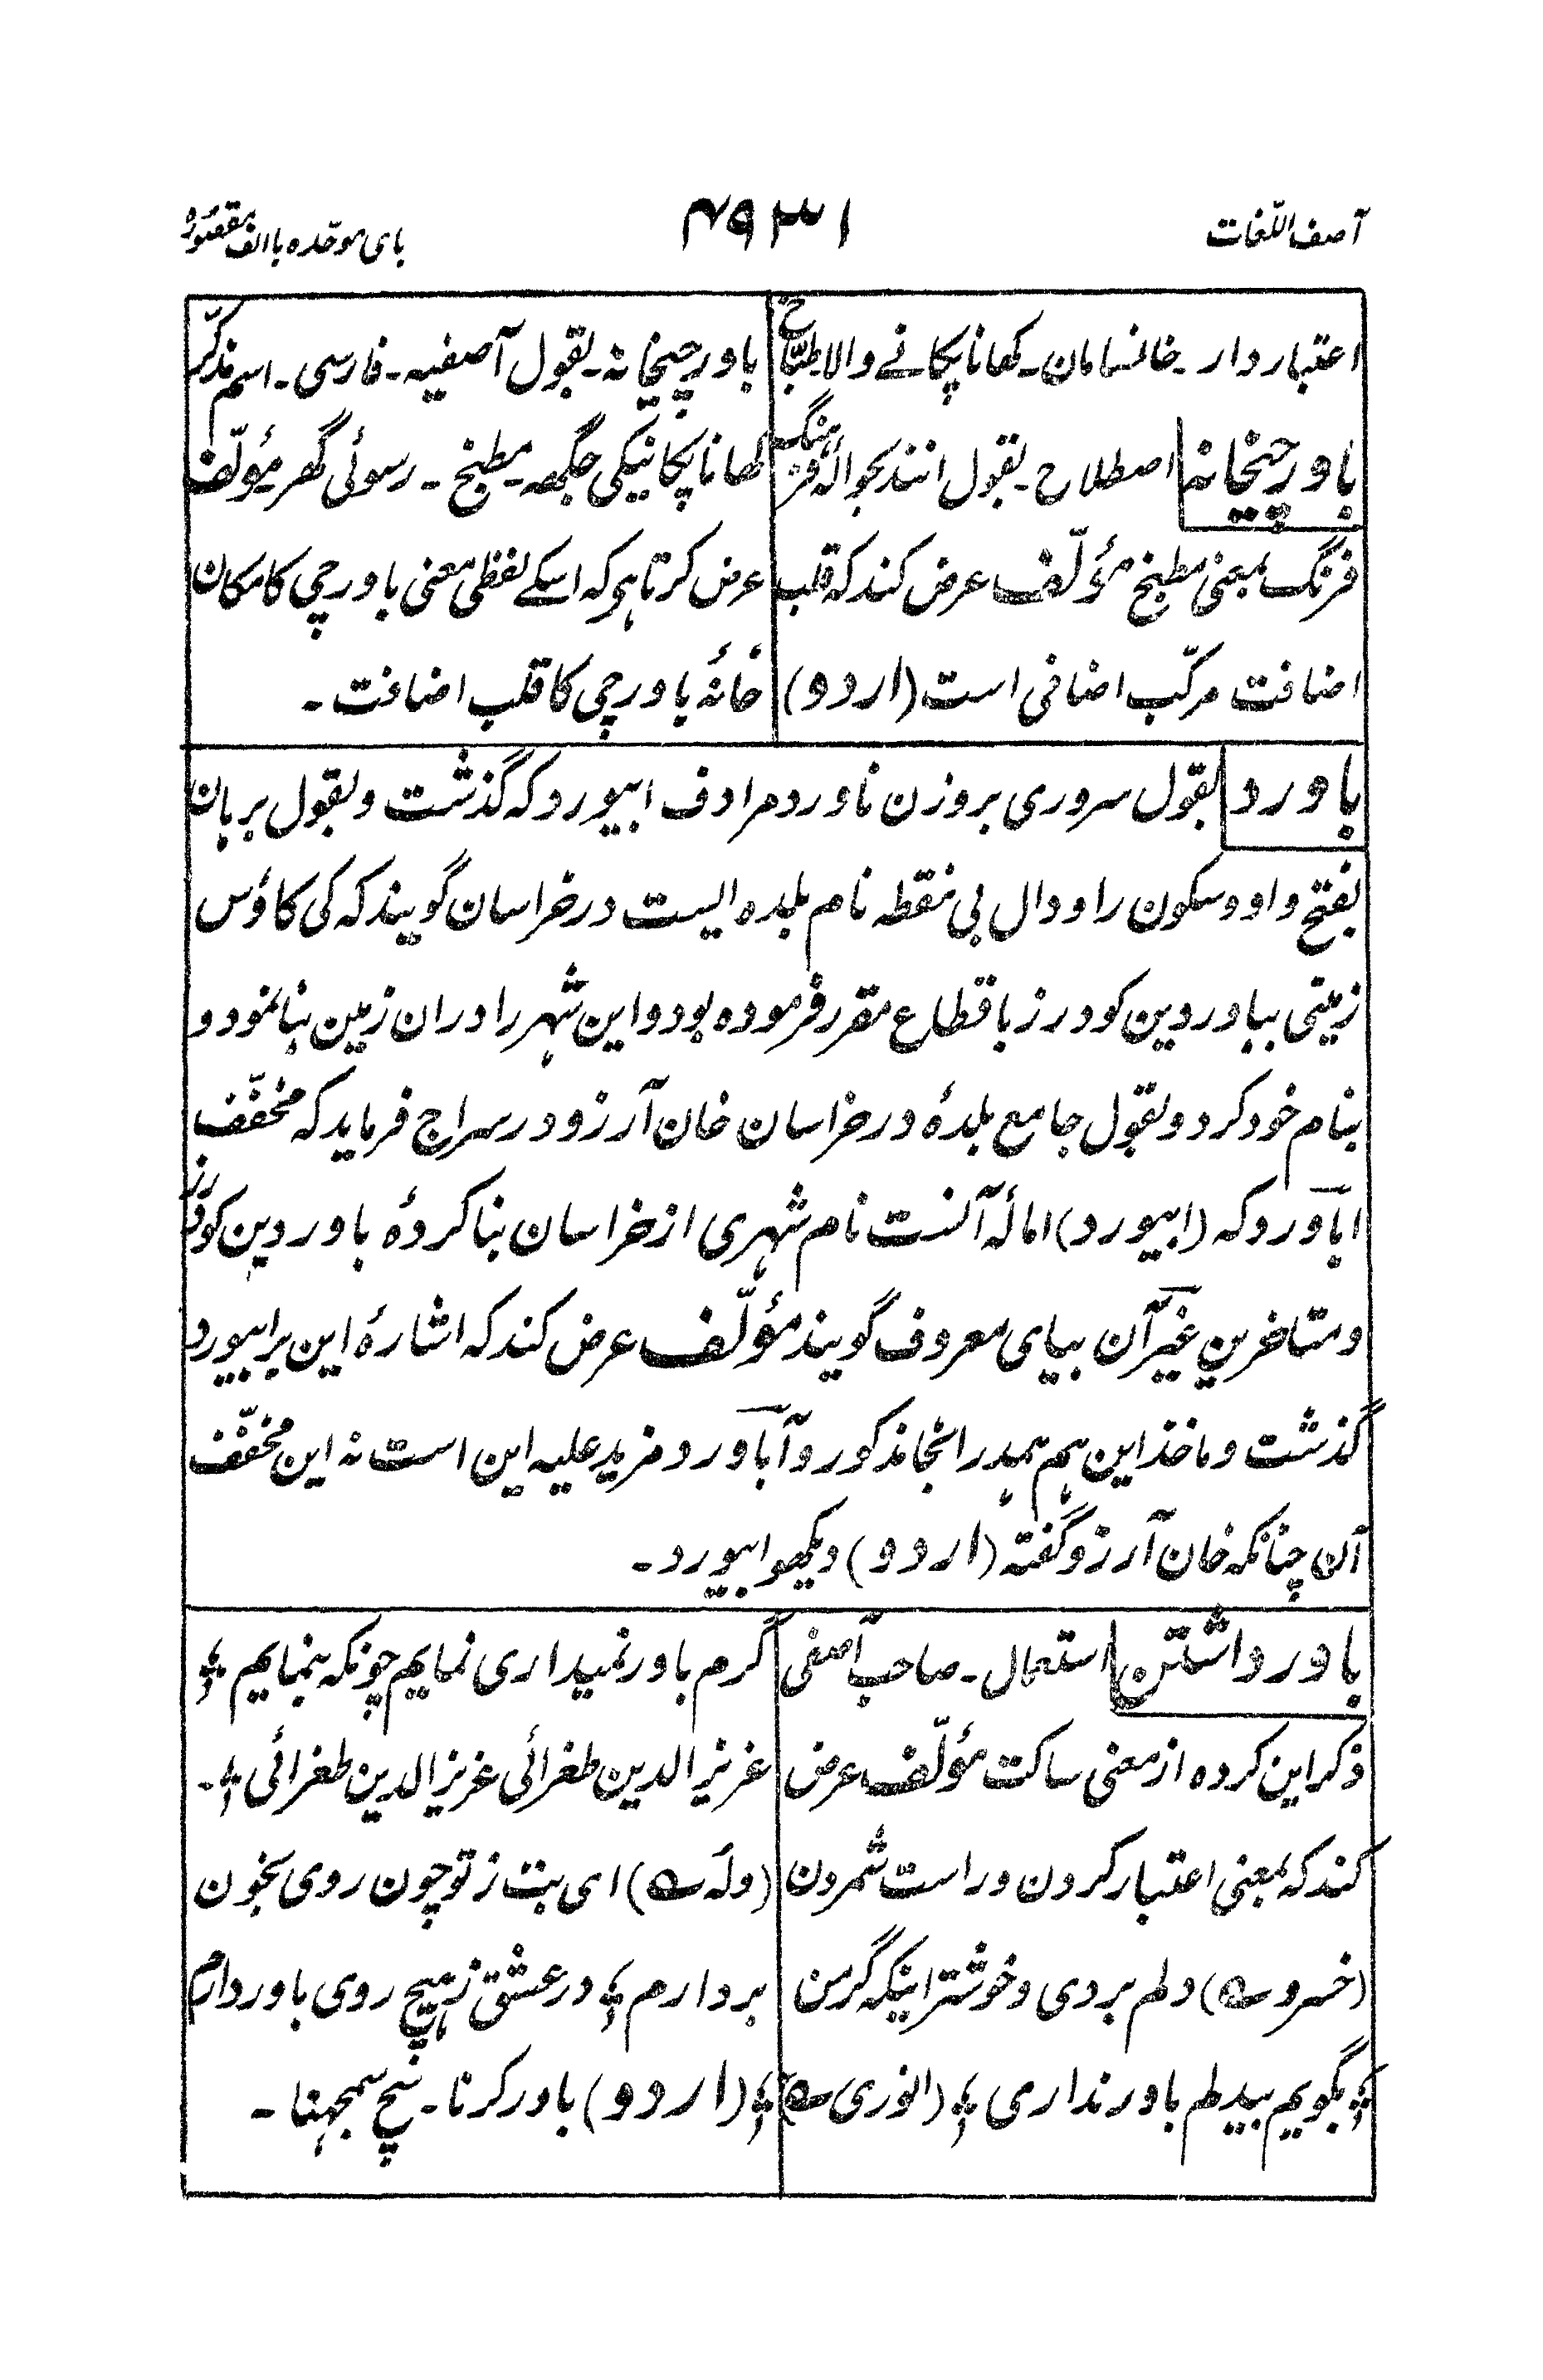 آصف اللّغات
۴۹۳۱
بای موحّده باالف مقصوره
اعتباردار ۔ خانسامان ۔ کھانا پکانے والا طبّاخ
باورچیخانہ اصطلاح ۔ بقول انند بحوالۂ فرہنگ
فرنگ بمعنی مطبخ مؤلّف عرض کند کہ قلب
اضافت مرکّب اضافی است (اردو)
باورچیخانہ ۔ بقول آصفیہ ۔ فارسی ۔ اسم مذکّر
کھانا پکانیکی جگھہ ۔ مطبخ ۔ رسوئی گھر مؤلّف
عرض کرتا ہی کہ اسکے لفظی معنی باورچی کا مکان
خانۂ باورچی کا قلب اضافت ۔
باورد بقول سروری بروزن ناورد مرادف ابیورد کہ گذشت و بقول برہان
بفتح واو و سکون را و دال بی نقطہ نام بلدہ ایست در خراسان گویند کہ کی کاؤس
زمینی بباوردین کودرز باقطاع مقرر فرمودہ بود و این شہر را دران زمین بنا نمود و
بنام خود کرد و بقول جامع بلدۂ در خراسان خان آرزو در سراج فرماید کہ مخفّف
اباورد کہ (ابیورد) امالۂ آنست نام شہری از خراسان بنا کردۂ باوردین کودرز
و متاخرین غیر آن بیای معروف گویند مؤلّف عرض کند کہ اشارۂ این بر ابیورد
گذشت و ماخذ این ہم ہمدرانجا مذکور و آباورد مزید علیہ این است نہ این مخفّف
آن چنانکہ خان آرزو گفتہ (اردو) دیکھو ابیورد ۔
باور داشتن استعمال ۔ صاحب آصفی
ذکر این کردہ از معنی ساکت مؤلّف عرض
کند کہ بمعنی اعتبار کردن و راست شمردن
(خسرو ؎) دلم بردی و خوشتر اینکہ گر من
؛ بگویم بیدلم باور نداری ؛ (انوری ؎)
گرم باور نمیداری نمایم چونکہ بنمایم ؛
عزیز الدین طغرائی عزیز الدین طغرائی ؛ ۔
(ولہ ؎) ای بت ز تو چون روی بخون
بردارم ؛ در عشق ز ہیچ روی باور دارم
؛ (اردو) باور کرنا ۔ سچ سمجہنا ۔